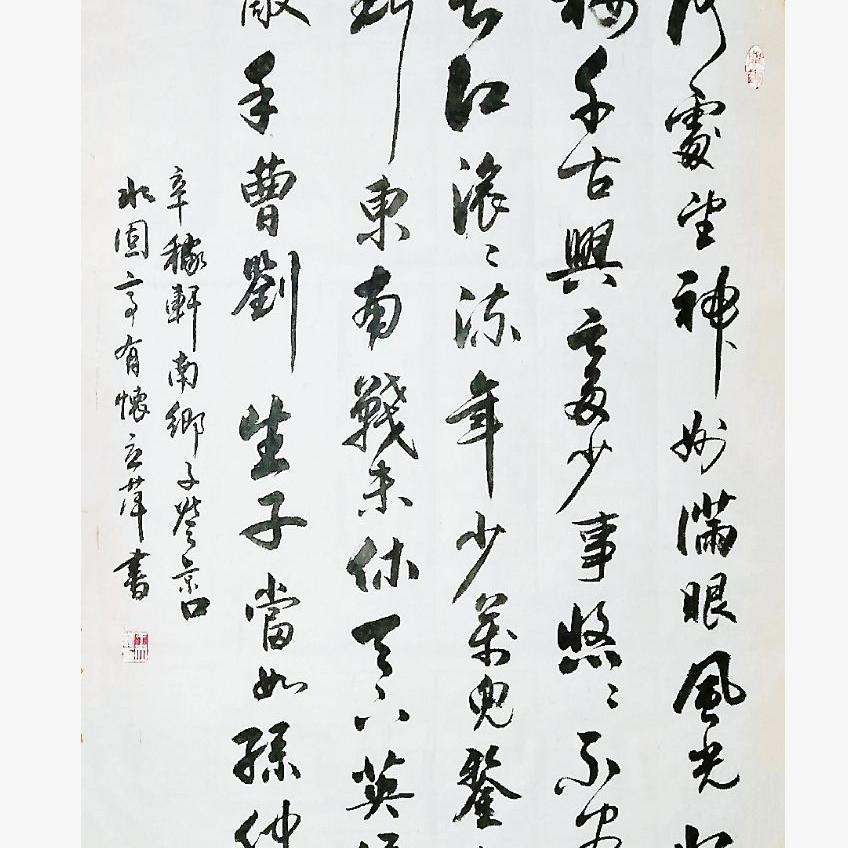 何處望神州滿眼風光北
樓千古興亡多少事悠〻不盡
長江滾〻流年少萬兜鍪
斷東南戰未休天下英雄
敵手曹劉生子當如孫仲
辛稼軒南鄉子登京口
北固亭有懷書